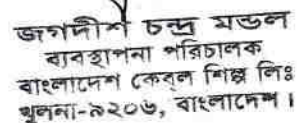 জগদীশ চন্দ্র মন্ডল
ব্যবস্থাপনা পরিচালক
বাংলাদেশ কেবল শিল্প লিঃ
খুলনা-৯২০৬, বাংলাদেশ।